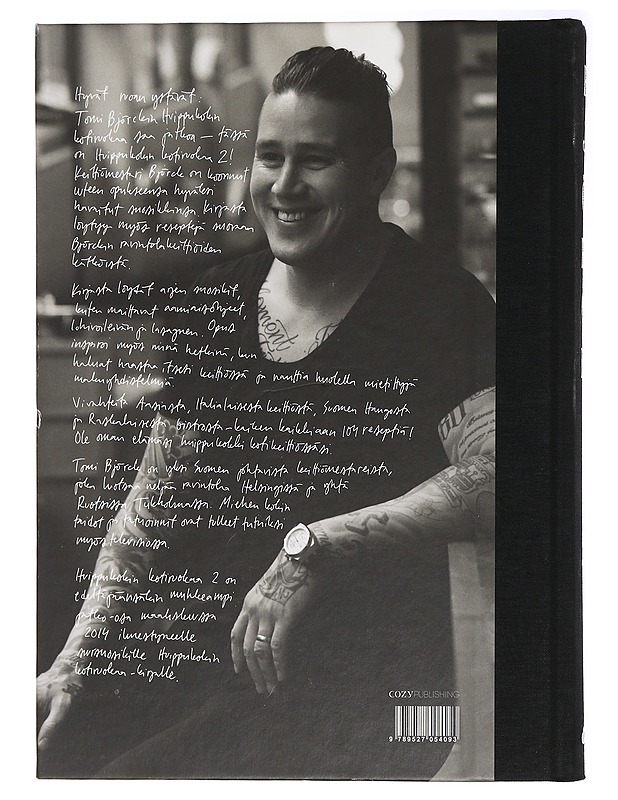 Hyvät ruoan ystävät:
Tomi Björckin Huippukokin
kotiruokaa saa jatkoa – tässä
on Huippukokin kotiruokaa 2!
Keittiömestari Björck on koonnut
uuteen opukseensa hyväksi
havaitut suosikkinsa. Kirjasta
löytyy myös reseptejä suoraan
Björckin ravintolakeittiöiden
kätköistä.
Kirjasta löydät arjen suosikit,
kuten maittavat aamiaisohjeet,
lohivoileivän ja lasagnen. Opus
inspiroi myös niinä hetkinä, kun
haluat haastaa itseäsi keittiössä ja nauttia huolella mietittyjä
makuyhdistelmiä.
Vivahteita Aasiasta, Italialaisesta keittiöstä, Suomen Hangosta
ja Ranskalaisesta bistrosta – kaiken kaikkiaan 104 reseptiä!
Ole oman elämäsi huippukokki kotikeittiössäsi.
Tomi Björck on yksi Suomen johtavista keittiömestareista,
joka luotsaa neljää ravintolaa Helsingissä ja yhtä
Ruotsissa Tukholmassa. Miehen kokin
taidot ja tatuoinnit ovat tulleet tutuiksi
myös televisiossa.
Huippukokin kotiruokaa 2 on
edeltäjäänsäkin muhkeampi
jatko-osa maaliskuussa
2014 ilmestyneelle
suursuosikille Huippukokin
kotiruokaa -kirjalle.
COZY PUBLISHING
9 789527 054093